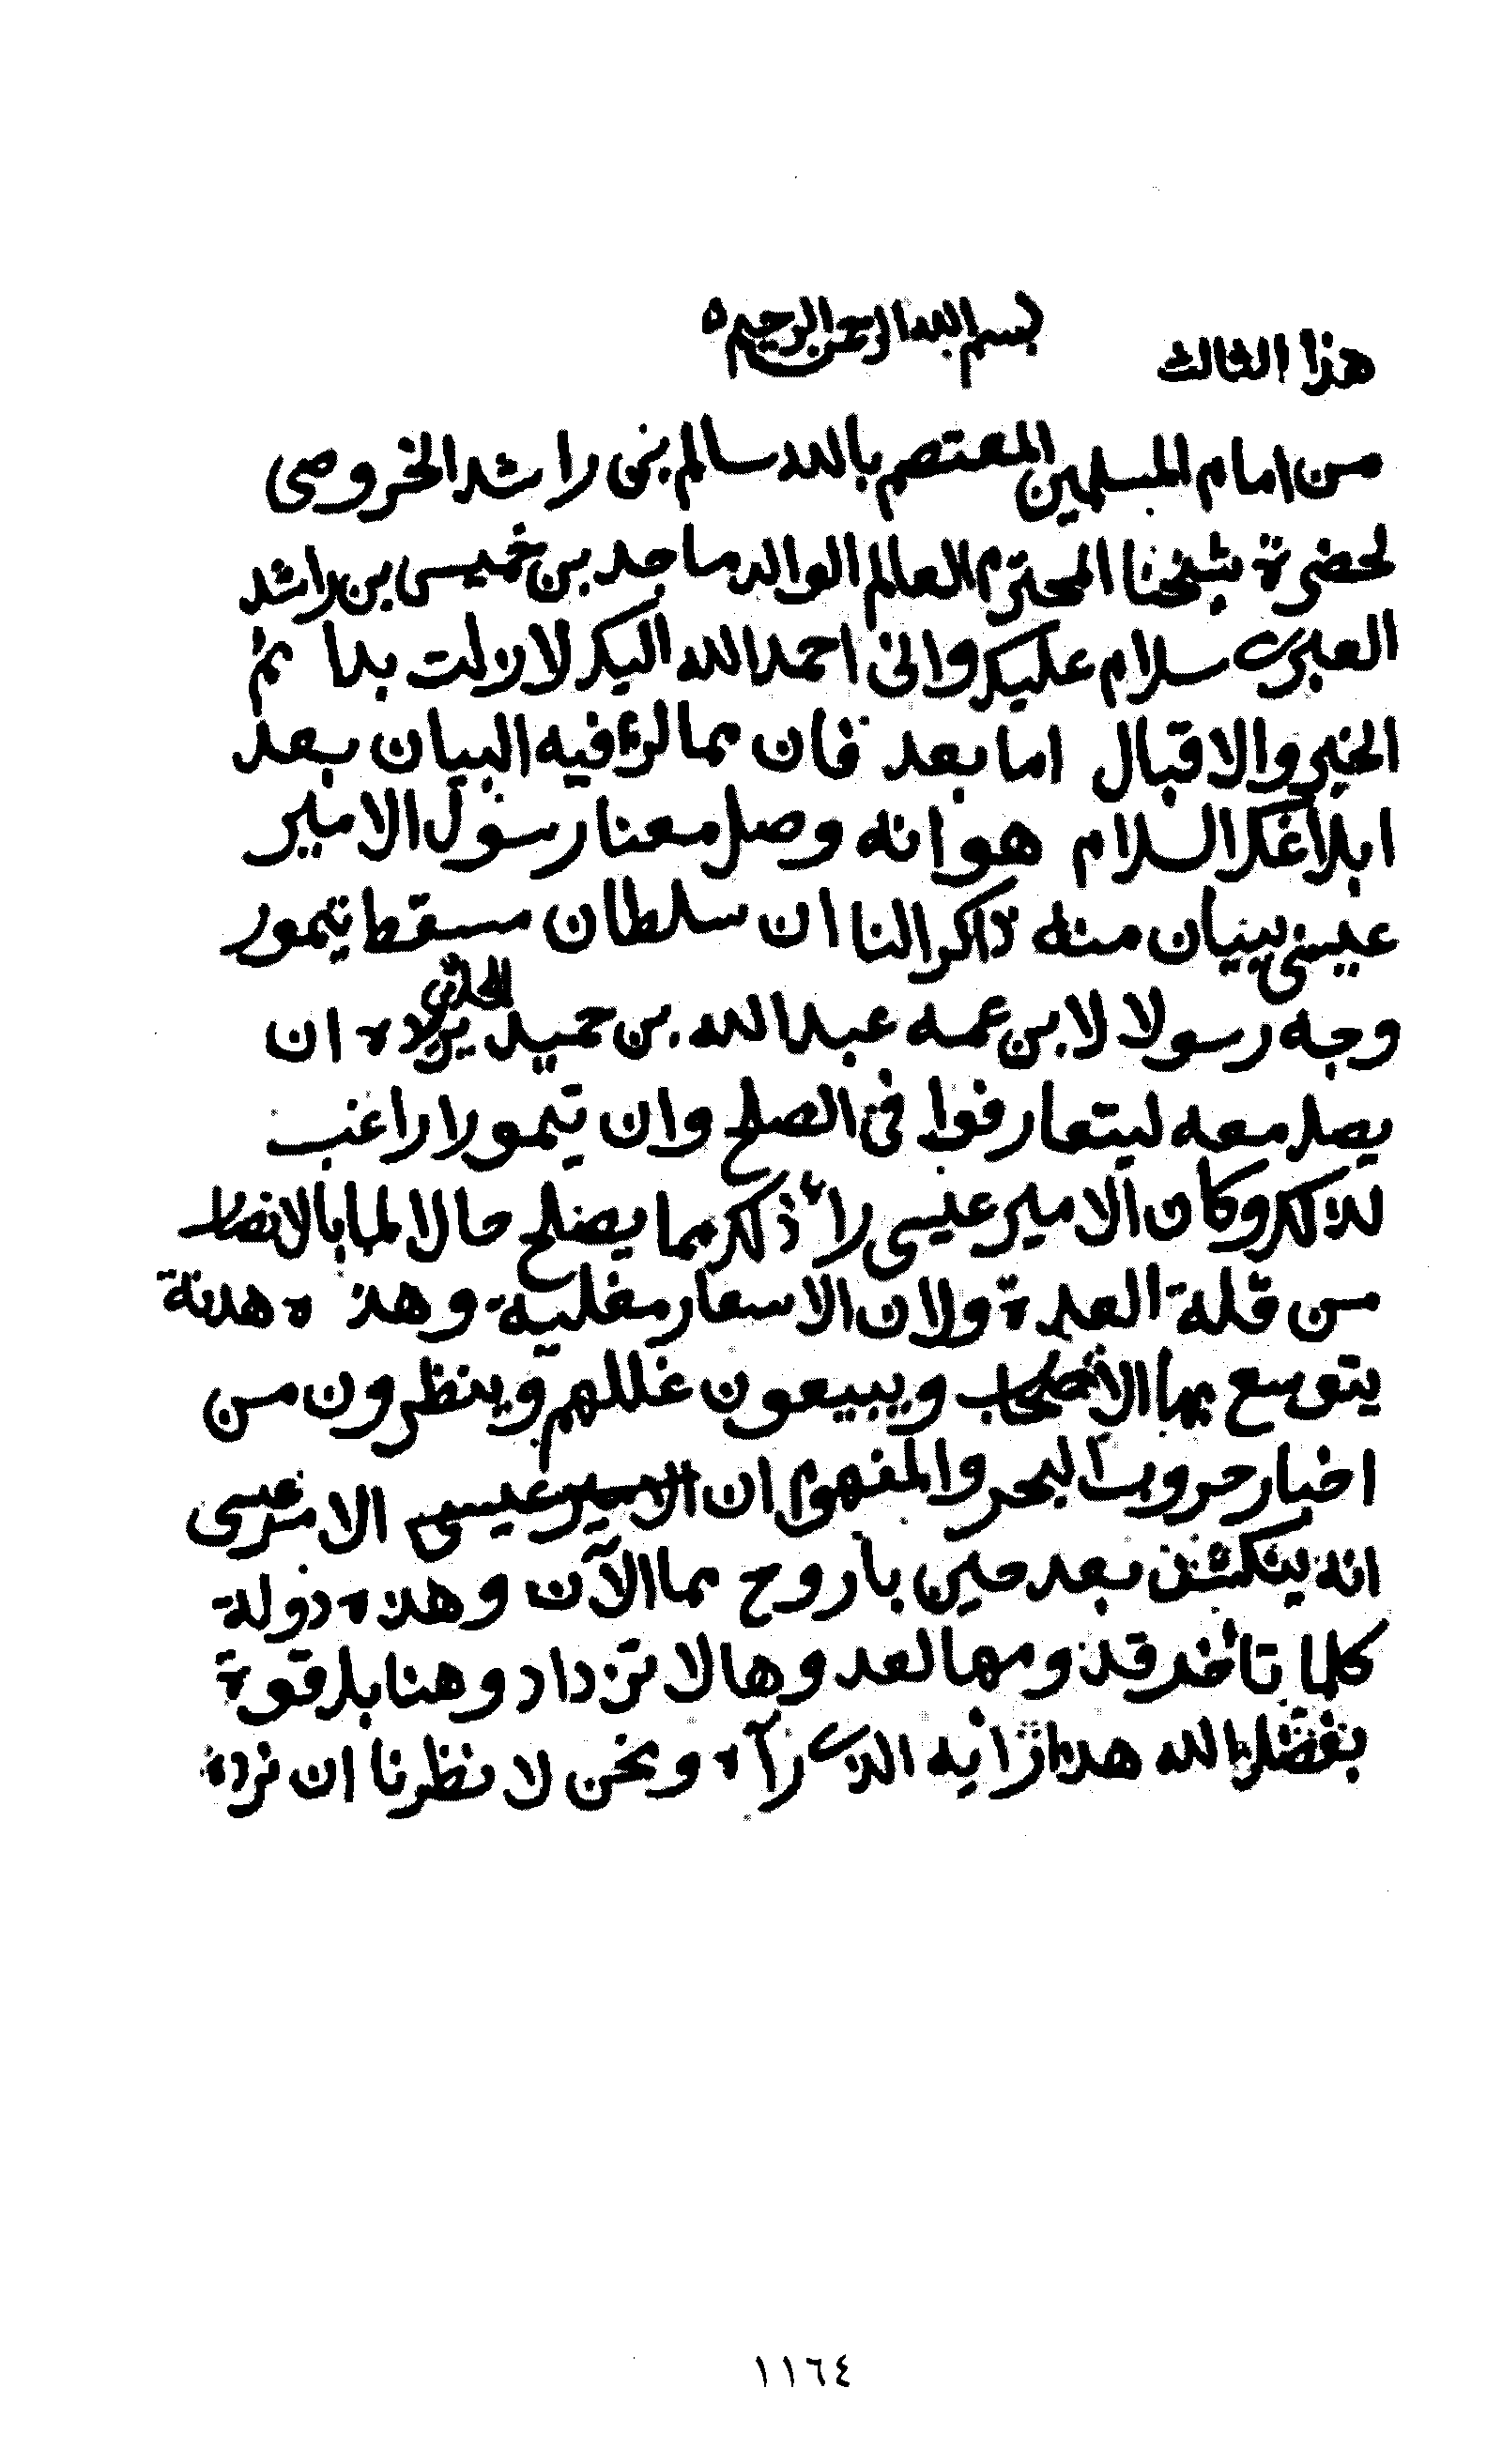 بسم الله الرحمن الرحيم
هذا الثالث
من امام المسلمين المعتصم بالله سالم بن راشد الخروصي
لحضرة شيخنا المحترم العالم الوالد ماجد بن خميس بن راشد
العبري سلام عليك واني احمد الله اليك لا زلت بدائم
الخير والاقبال اما بعد فان مما لزم فيه البيان بعد
ابلاغك السلام هو انه وصل معنا رسول الامير
عيسى ببيان منه ذاكر النا ان سلطان مسقط تيمور
وجه رسولا لابن عمه عبدالله بن حميد يريده ان
يصل معه ليتعارفوا في الصلح وان تيمور راغب
لذلك وكان الامير عيسى راى ذلك مما يصلح حالا لما بالانصار
من قلة العدة ولان الاسعار مغلية وهذه هدنة
يتوسع بها الاصحاب ويبيعون غللهم وينظرون من
اخبار حروب البحر والمفهوم ان الامير عيسى الامر عسى
انه ينكشف بعد حين باروح مما الآن وهذه دولة
كلما تاخرت ومهما لعد وها لا تزداد وهنا بل قوة
بفضل الله هذا رايه الذي رآه ونحن لا نظرنا ان نرده
١١٦٤